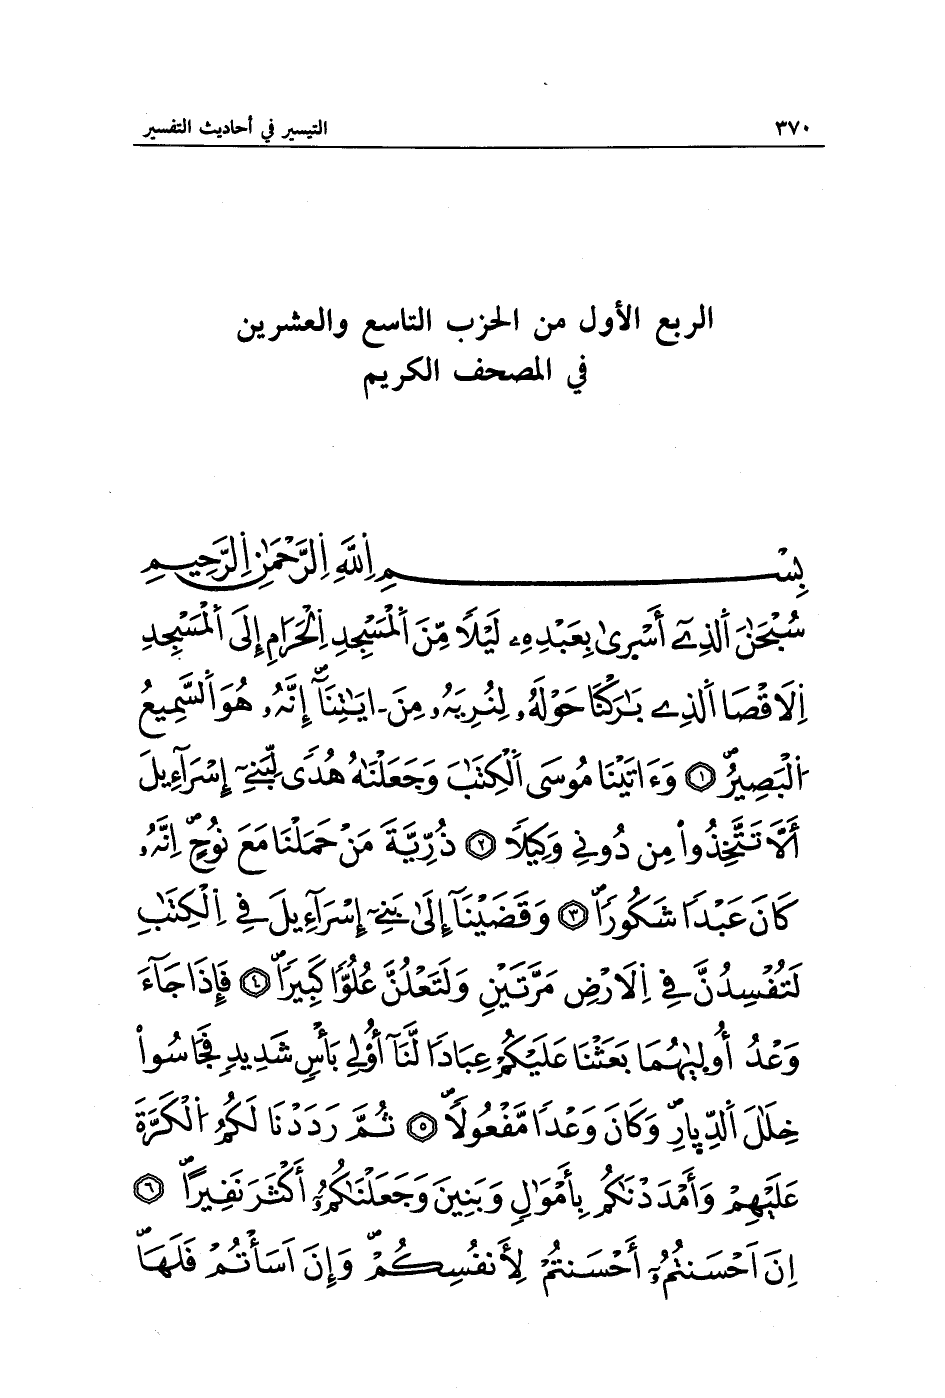 ٣٧٠ التيسير في أحاديث التفسير
الربع الأول من الحزب التاسع والعشرين
في المصحف الكريم
بِسْمِ اِللَّهِ اِلرَّحْمَٰنِ اِلرَّحِيمِ
سُبْحَٰنَ اَلذِےٓ أَسْر۪يٰ بِعَبْدِهِۦ لَيْلًا مِّنَ اَلْمَسْجِدِ اِلْحَرَامِ إِلَي اَلْمَسْجِدِ
اِلَاقْصَا اَلذِے بَٰرَكْنَا حَوْلَهُۥ لِنُرِيَهُۥ مِنَ ـ ايَٰتِنَآۖ إِنَّهُۥ هُوَ اَلسَّمِيعُ
اُلْبَصِيرُۖ ١ وَءَاتَيْنَا مُوسَي اَلْكِتَٰبَ وَجَعَلْنَٰهُ هُديٗ لِّبَنِےٓ إِسْرَآءِيلَ
أَلَّا تَتَّخِذُواْ مِن دُونِي وَكِيلًا ٢ ذُرِّيَّةَ مَنْ حَمَلْنَا مَعَ نُوحٍۖ اِنَّهُۥ
كَانَ عَبْدٗا شَكُورٗاۖ ٣ وَقَضَيْنَآ إِلَيٰ بَنِےٓ إِسْرَآءِيلَ فِے اِلْكِتَٰبِ
لَتُفْسِدُنَّ فِے اِلَارْضِ مَرَّتَيْنِ وَلَتَعْلُنَّ عُلُوّٗا كَبِيرٗاۖ ٤ فَإِذَا جَآءَ
وَعْدُ أُول۪يٰهُمَا بَعَثْنَا عَلَيْكُمْ عِبَادٗا لَّنَآ أُوْلِي بَأْسٖ شَدِيدٖ فَجَاسُواْ
خِلَٰلَ اَلدِّي۪ارِۖ وَكَانَ وَعْدٗا مَّفْعُولٗاۖ ٥ ثُمَّ رَدَدْنَا لَكُمُ اُلْكَرَّةَ
عَلَيْهِمْ وَأَمْدَدْنَٰكُم بِأَمْوَٰلٖ وَبَنِينَ وَجَعَلْنَٰكُمُۥٓ أَكْثَرَ نَفِيراًۖ ٦
اِنَ اَحْسَنتُمُۥٓ أَحْسَنتُمْ لِأَنفُسِكُمْۖ وَإِنَ اَسَأْتُمْ فَلَهَاۖ